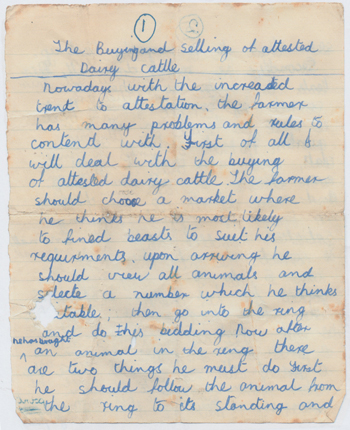 1 2
The Buying and Selling of attested
Dairy cattle
Nowadays with the increaced
trent to attestation, the farmer
has many problems and rules to
contend with. First of all I
will deal with the buying
of attested dairy cattle. The farmer
should choose a market where
he thinks he is most likely
to fined beasts to suit his
requirments, upon arriving he
should view all animals and
selecte a number which he thinks
table, then go into the ring
and do his bidding Now after
he has bought
an animal in the ring there
are two things he must do first
he should follow the animal from
the ring to its standing and